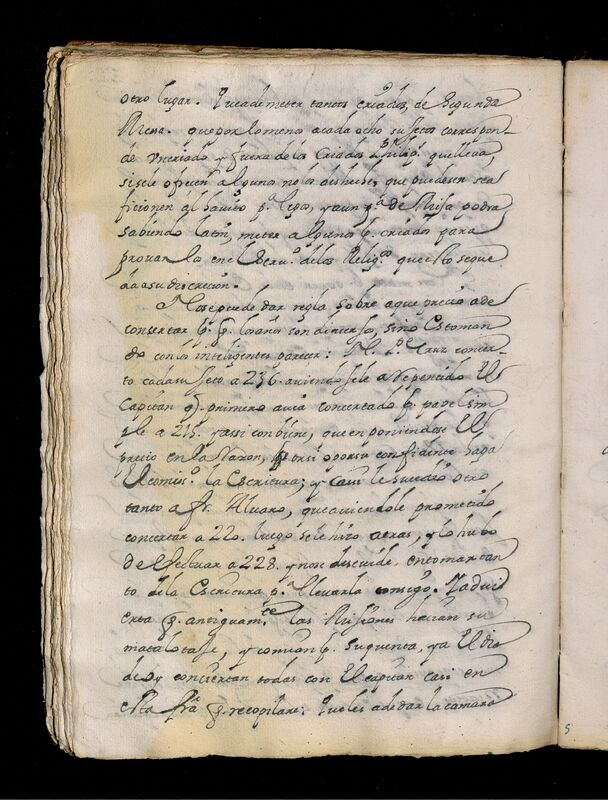 otro lugar. Que ade meter tantos criados, de Segunda
Mesa. que por lo menos acada ocho sugetos correspon-
de un criado y fuera de la Criados q̃ lleva,
si se le ofrecen algunos no los deshuse, que pueden sea
ficionen al havito p.ª legos, y aun p.ª de Misa podra
sabiendo latin, meter algunos p. criados para
provarlos en el de los Relig.os que esto se que
da a su discrecion.
No se puede dar regla sobre a que precio a de
consertar p. q. los años son diversos, sino es toman
do con los inteligentes parecer: El P.e Cruz conser-
to cada sugeto a 236. aviendosele arrepentido El
Capitan q. primero avia concertado p. papel sim
ple a 215. y assi conbiene, que en poniendose El
precio en la Razon, por si o por su confidente haga
El comiss.º la Escritura; y casi le sucedio otro
tanto a fr. Alvaro, que aviendole prometido
concertar a 220. luego se le hizo atras, y lo hubo
de efectuar a 228. y no se descuide, en tomar tan
to de la Escritura p.ª llevarla consigo. Y advi
erta q. antiguam.te las Misiones hacian su
matalotage, y comian p. su quenta, ya El dia
de oy conciertan todas con El capitan casi en
esta for.ª q. recopilare: Que les a de dar la camara
5